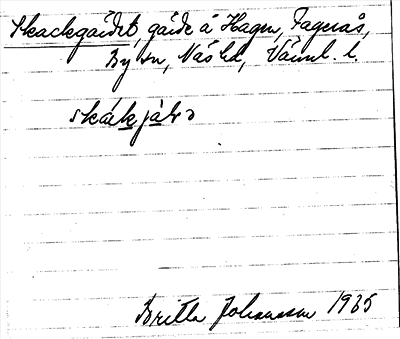 Skackgärdet, gärde å Hagen, Fagerås,
By sn, Näs hd, Värml. l.
skákjálə
Britta Johansson 1935